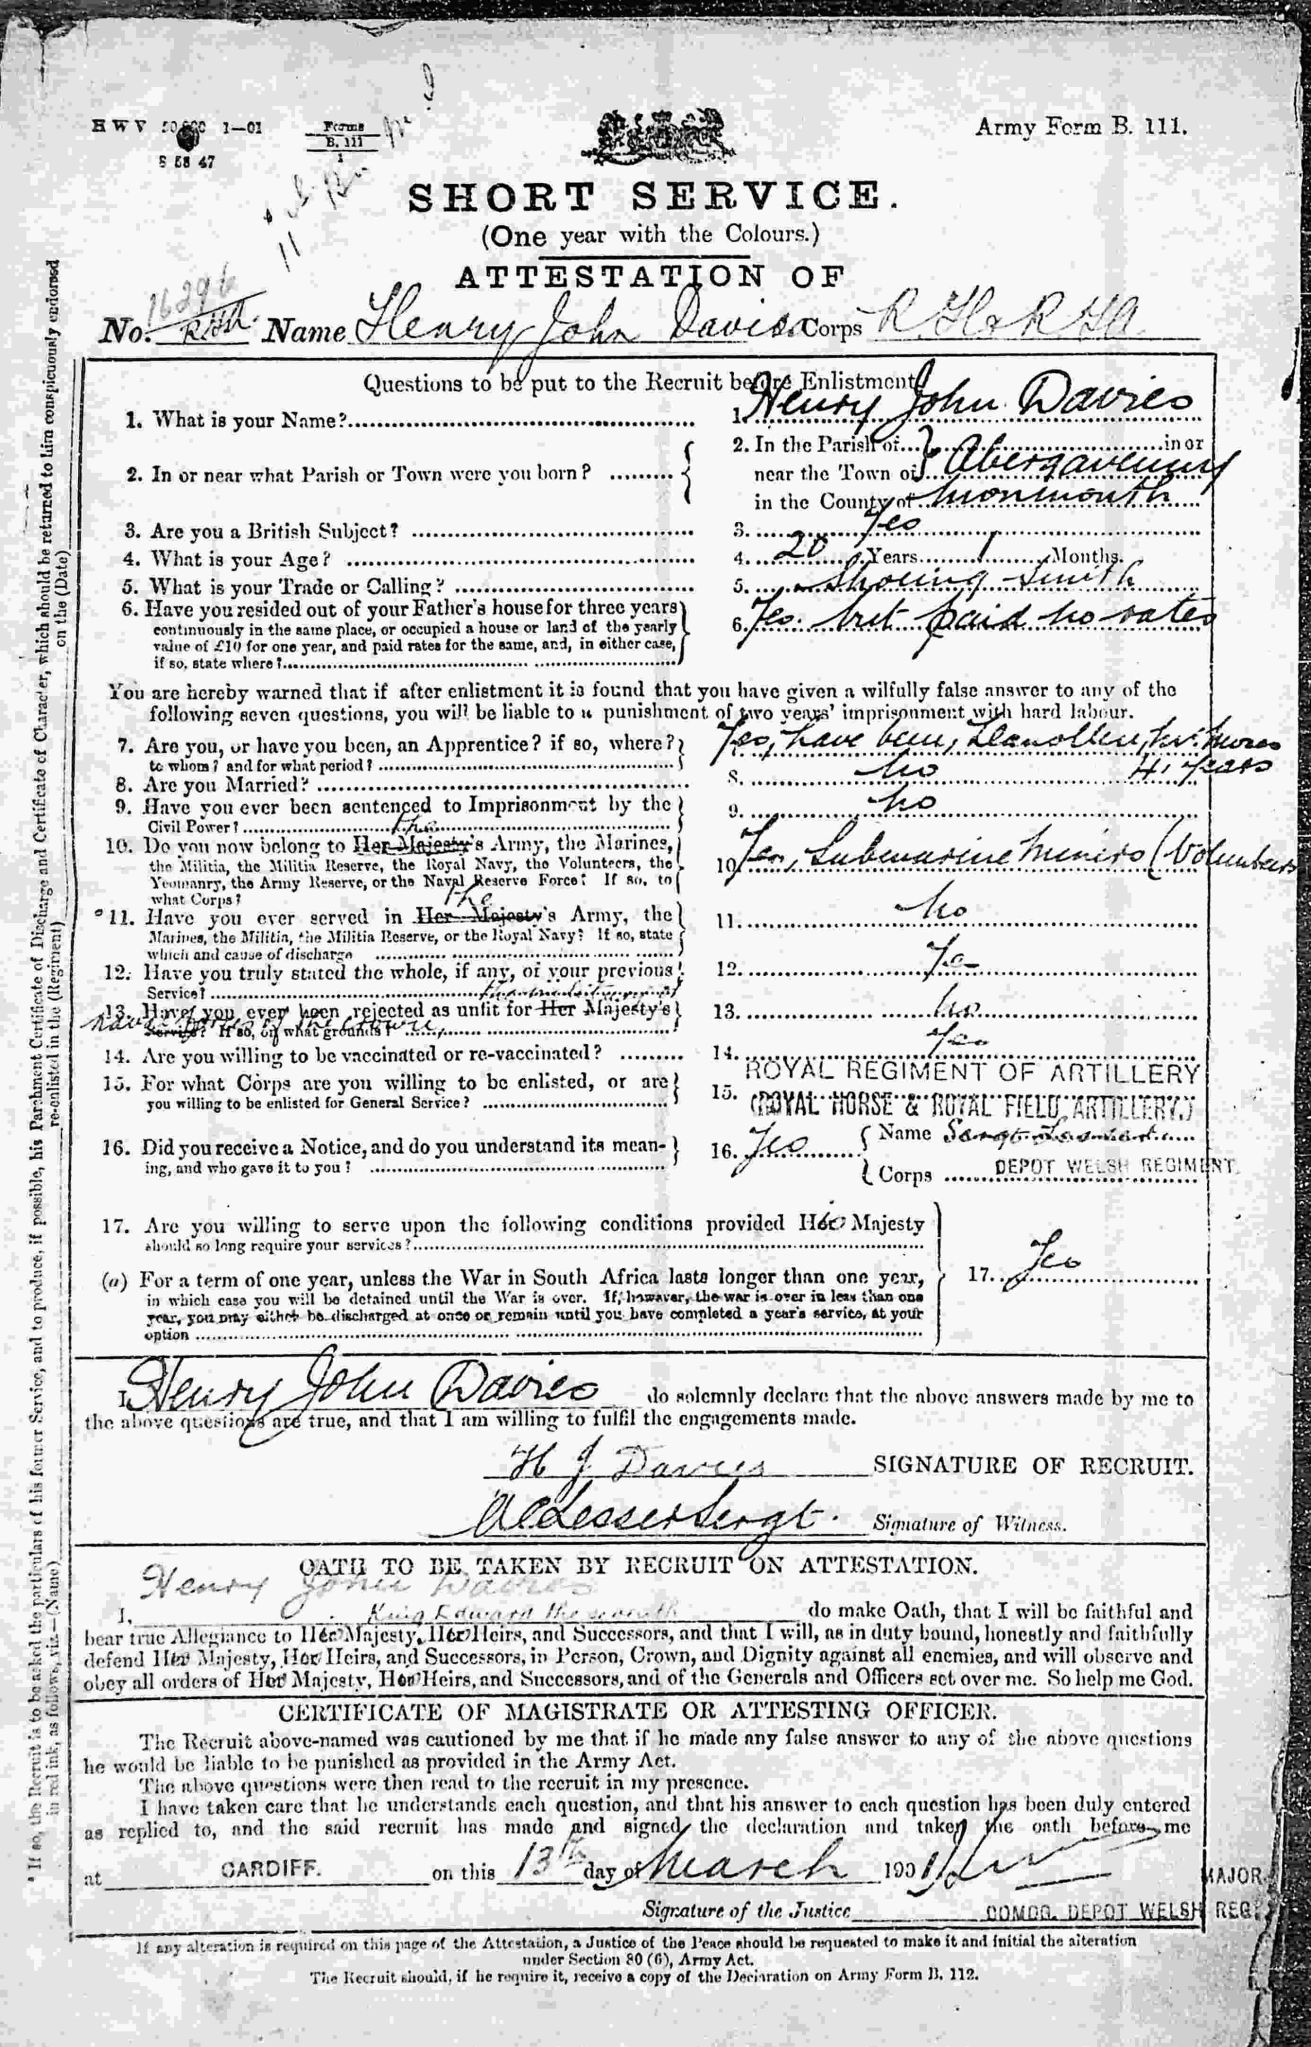 HWV 50,000 1—01
S 58 47
Forms
B. 111
1
Army Form B. 111.
SHORT SERVICE.
(One year with the Colours.)
ATTESTATION OF
No. 16296 Name Henry John Davies Corps R.H & R.F.A.
Questions to be put to the Recruit before Enlistment.
1. What is your Name? 1. Henry John Davies
2. In or near what Parish or Town were you born? 2. In the Parish of in or
near the Town of Abergavenny
in the County of Monmouth
3. Are you a British Subject? 3. Yes
4. What is your Age? 4. 20 Years 1 Months.
5. What is your Trade or Calling? 5. Shoeing Smith
6. Have you resided out of your Father's house for three years 6. Yes but paid no rates
continuously in the same place, or occupied a house or land of the yearly
value of £10 for one year, and paid rates for the same, and, in either case,
if so, state where?
You are hereby warned that if after enlistment it is found that you have given a wilfully false answer to any of the
following seven questions, you will be liable to a punishment of two years' imprisonment with hard labour.
7. Are you, or have you been, an Apprentice? if so, where? Yes, have been,
to whom? and for what period? 4 Years
8. Are you Married? 8. No
9. Have you ever been sentenced to Imprisonment by the 9. No
Civil Power?
10. Do you now belong to Her Majesty's the Army, the Marines, 10. Yes, Submarine Miners (Volunteers
the Militia, the Militia Reserve, the Royal Navy, the Volunteers, the
Yeomanry, the Army Reserve, or the Naval Reserve Force? If so, to
what Corps?
*11. Have you ever served in Her Majesty's the Army, the 11. No
Marines, the Militia, the Militia Reserve, or the Royal Navy? If so, state
which and cause of discharge
12. Have you truly stated the whole, if any, of your previous 12. Yes
Service?
13. Have you ever been rejected as unfit for Her Majesty's 13. No
the military or
naval forces of the Crown,
Service? If so, on what grounds?
14. Are you willing to be vaccinated or re-vaccinated? 14. Yes
15. For what Corps are you willing to be enlisted, or are 15. ROYAL REGIMENT OF ARTILLERY
you willing to be enlisted for General Service? (ROYAL HORSE & ROYAL FIELD ARTILLERY.)
16. Did you receive a Notice, and do you understand its mean- 16. Yes Name Sergt
ing, and who gave it to you? Corps DEPOT WELSH REGIMENT.
17. Are you willing to serve upon the following conditions provided His Majesty
should so long require your services?
17. Yes
(a) For a term of one year, unless the War in South Africa lasts longer than one year,
in which case you will be detained until the War is over. If, however, the war is over in less than one
year, you may either be discharged at once or remain until you have completed a year's service, at your
option
I Henry John Davies do solemnly declare that the above answers made by me to
the above questions are true, and that I am willing to fulfil the engagements made.
H J Davies SIGNATURE OF RECRUIT.
Sergt. Signature of Witness.
OATH TO BE TAKEN BY RECRUIT ON ATTESTATION.
Henry John Davies
I, do make Oath, that I will be faithful and
King Edward the seventh
bear true Allegiance to His Majesty, His Heirs, and Successors, and that I will, as in duty bound, honestly and faithfully
defend His Majesty, His Heirs, and Successors, in Person, Crown, and Dignity against all enemies, and will observe and
obey all orders of His Majesty, His Heirs, and Successors, and of the Generals and Officers set over me. So help me God.
CERTIFICATE OF MAGISTRATE OR ATTESTING OFFICER.
The Recruit above-named was cautioned by me that if he made any false answer to any of the above questions
he would be liable to be punished as provided in the Army Act.
The above questions were then read to the recruit in my presence.
I have taken care that he understands each question, and that his answer to each question has been duly entered
as replied to, and the said recruit has made and signed the declaration and taken the oath before me
at CARDIFF. on this 13th day of March 1901
MAJOR
Signature of the Justice COMDG. DEPOT WELSH REGT
If any alteration is required on this page of the Attestation, a Justice of the Peace should be requested to make it and initial the alteration
under Section 80 (6), Army Act.
The Recruit should, if he require it, receive a copy of the Declaration on Army Form B. 112.
*If so, the Recruit is to be asked the particulars of his former Service, and to produce, if possible, his Parchment Certificate of Discharge and Certificate of Character, which should be returned to him conspicuously endorsed
in red ink, as follows, viz.—(Name) re-enlisted in the (Regiment) on the (Date)